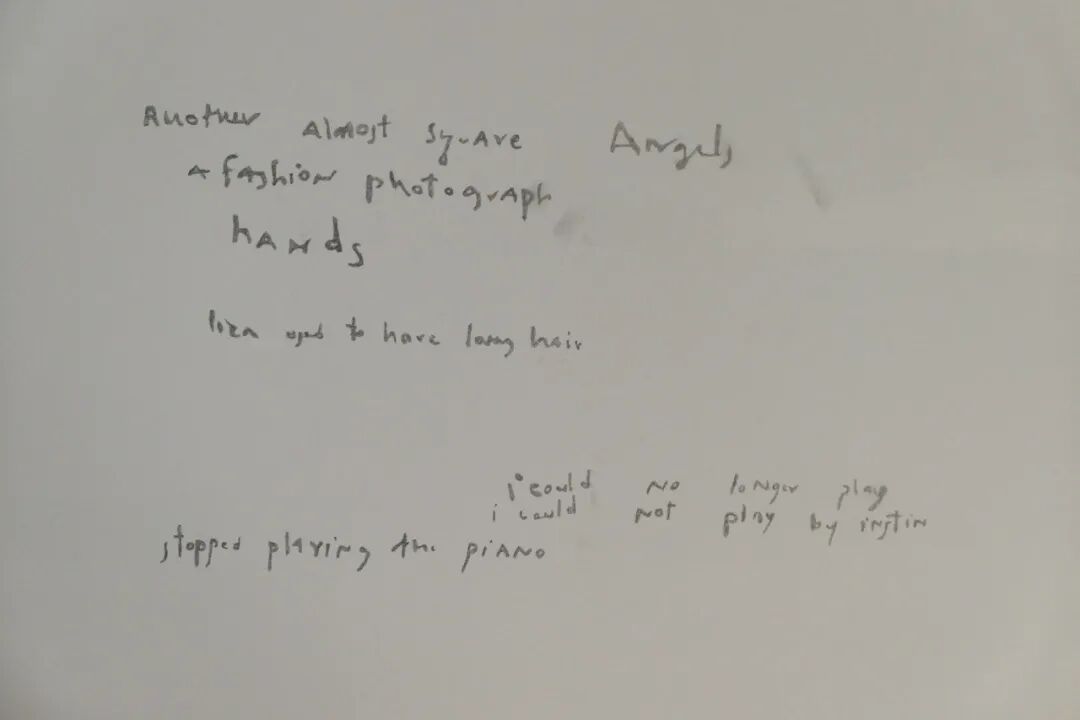 Another Almost square Angels
a fashion photograph
hands
liza used to have long hair
i could no longer play
i could not play by instin
stopped playing the piano